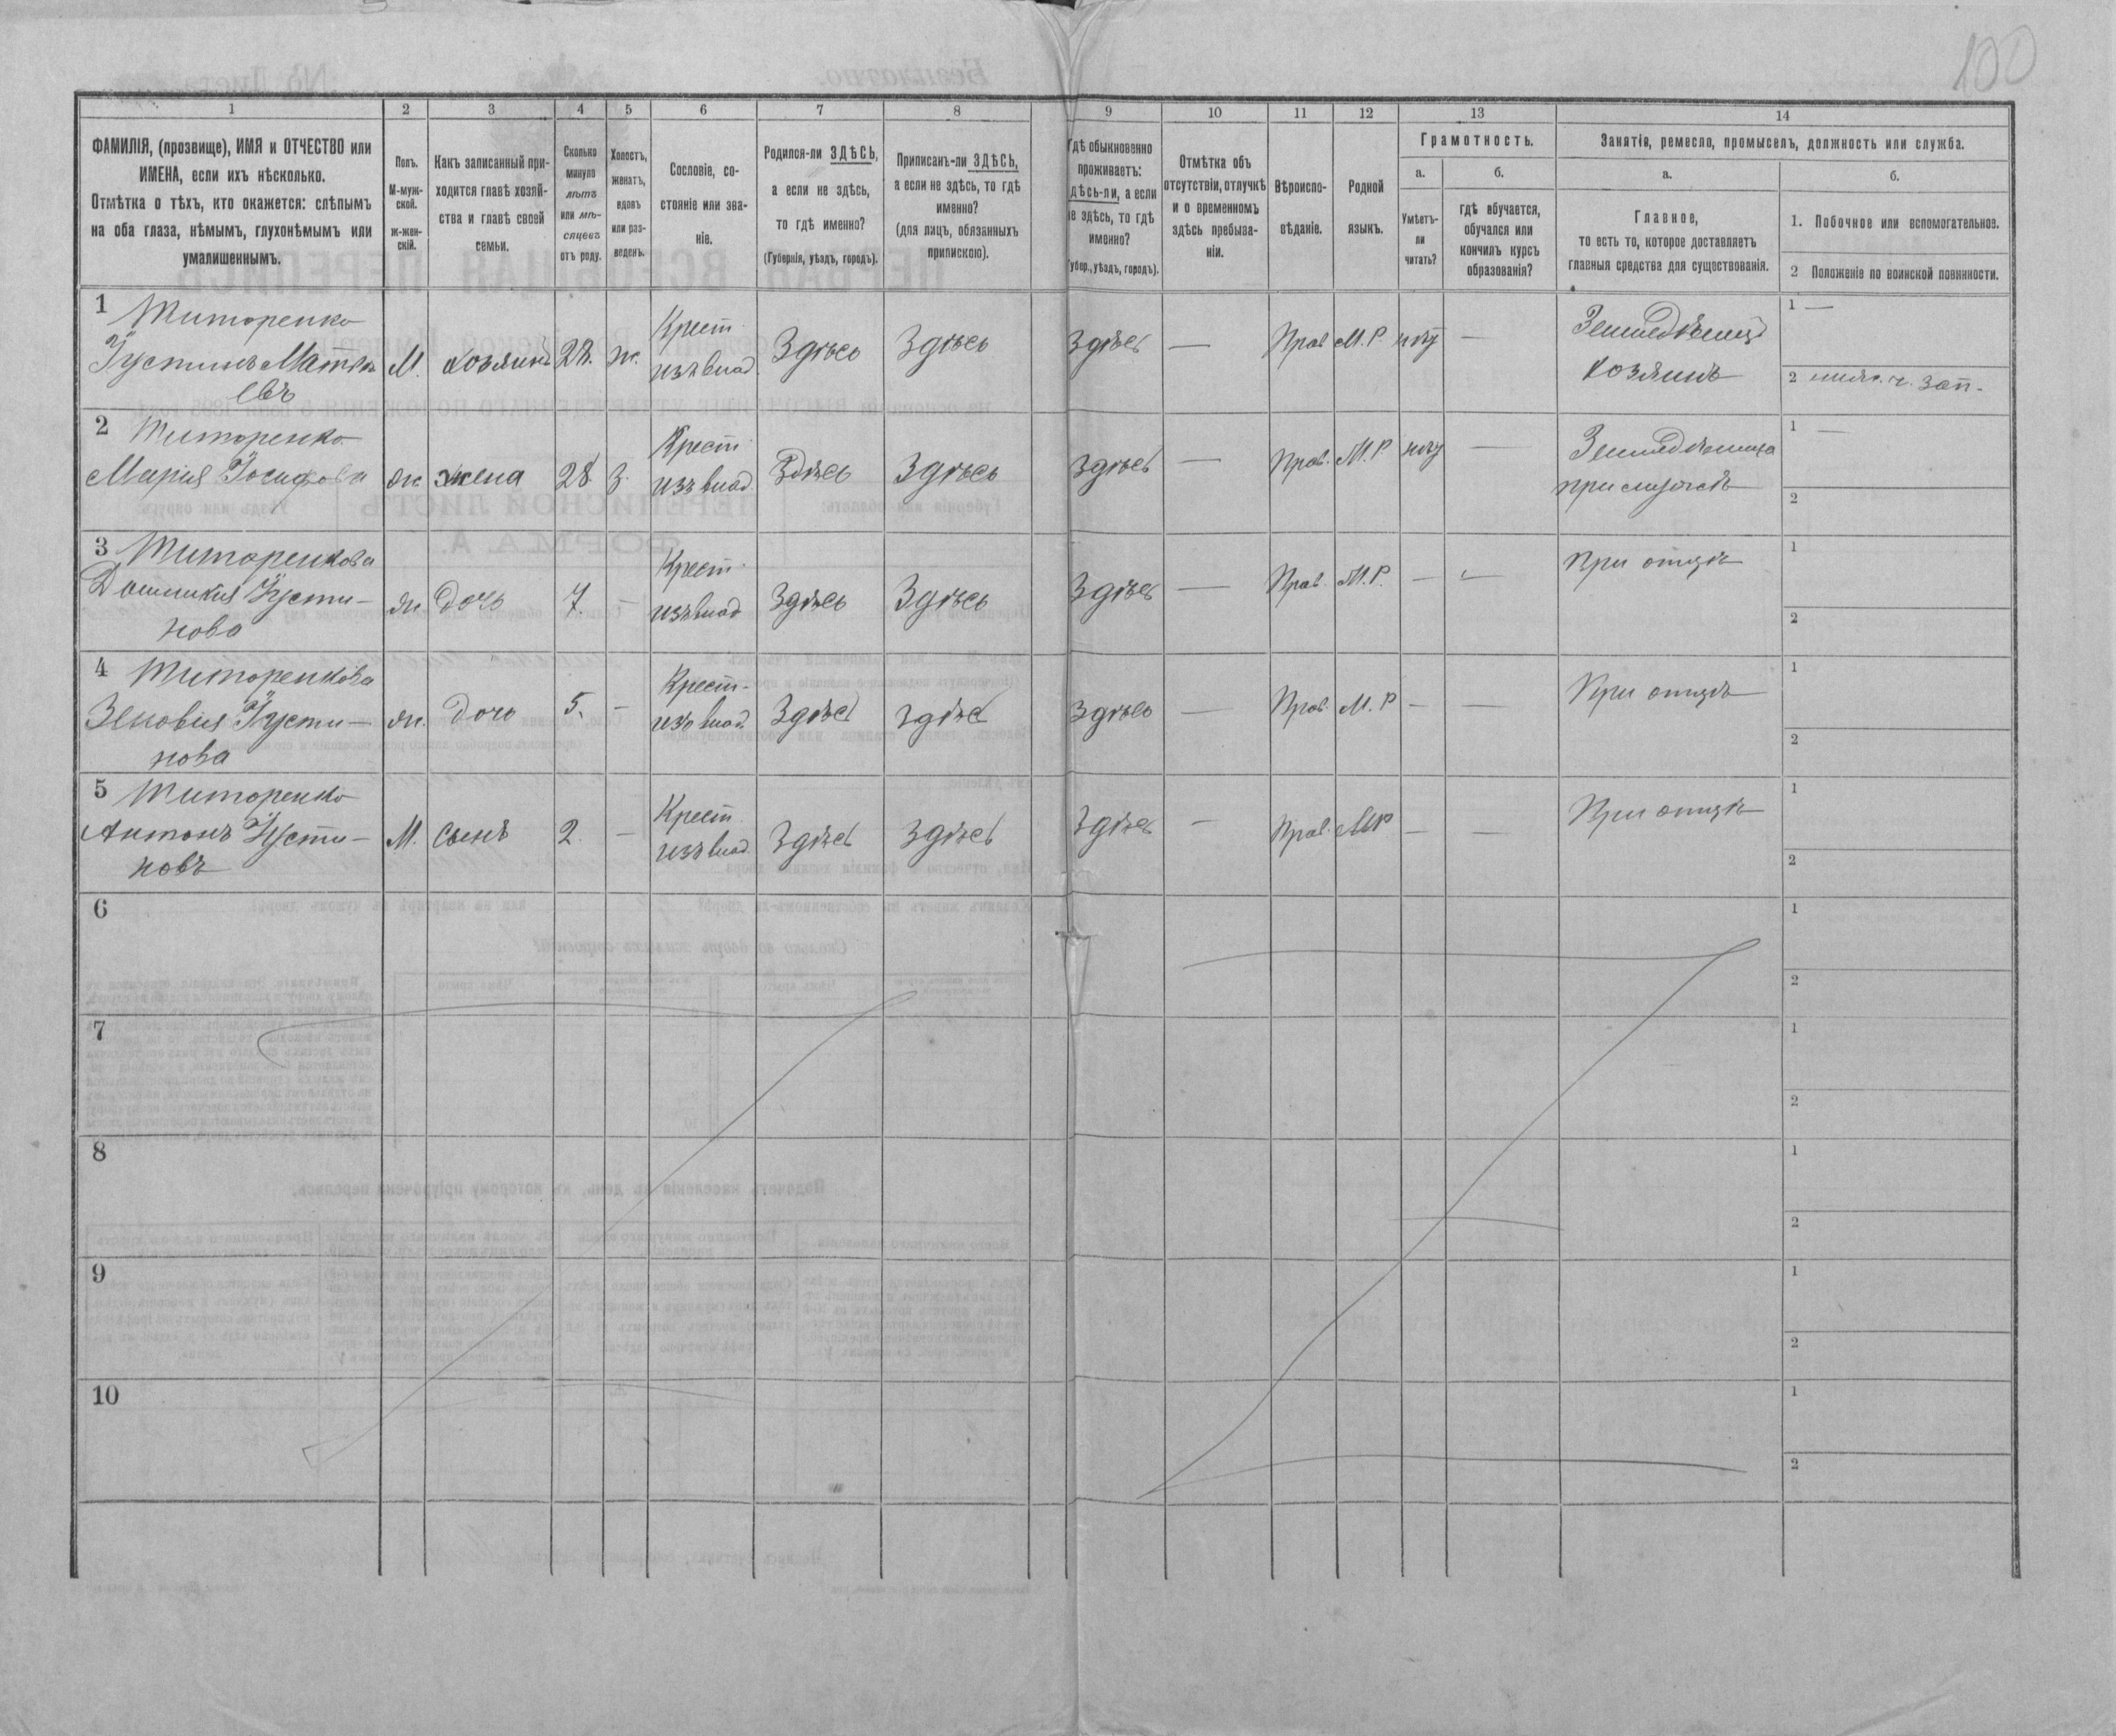 100
1
2
3
4
5
6
7
8
9
10
11
12
13
14
ФАМИЛІЯ, (прозвище), ИМЯ и ОТЧЕСТВО или
ИМЕНА, если ихъ нѣсколько.
Отмѣтка о тѣхъ, кто окажется: слѣпымъ
на оба глаза, нѣмымъ, глухонѣмымъ или
умалишеннымъ.
Полъ.
М-муж-
ской.
Ж-жен-
скій.
Какъ записанный при-
ходится главѣ хозяй-
ства и главѣ своей
семьи.
Сколько
минуло
лѣтъ
или мѣ-
сяцевъ
отъ роду.
Холостъ,
женатъ,
вдовъ
или раз-
веденъ.
Сословіе, со-
стояніе или зва-
ніе.
Родился-ли ЗДѢСЬ,
а если не здѣсь,
то гдѣ именно?
(Губернія, уѣздъ, городъ).
Приписанъ-ли ЗДѢСЬ,
а если не здѣсь, то гдѣ
именно?
(для лицъ, обязанныхъ
припискою).
Гдѣ обыкновенно
проживаетъ:
здѣсь-ли, а если
не здѣсь, то гдѣ
именно?
(Губер., уѣздъ, городъ).
Отмѣтка объ
отсутствіи, отлучкѣ
и о временномъ
здѣсь пребыва-
ніи.
Вѣроиспо-
вѣданіе.
Родной
языкъ.
Грамотность.
а.
Умѣетъ-
ли
читать?
б.
гдѣ обучается,
обучался или
кончилъ курсъ
образованія?
Занятія, ремесло, промыселъ, должность или служба.
а.
Главное,
то есть то, которое доставляетъ
главныя средства для существованія.
б.
1. Побочное или вспомогательное.
2 Положеніе по воинской повинности.
1 Титоренко
Іустинъ Матвѣ
евъ
М. Хозяинъ 28. ж. Крест. изъ влад. Здѣсь Здѣсь Здѣсь — Прав М.Р. нѣт —
Земледѣлец
хозяинъ
1 —
2 зап.
2 Титоренко
Мария Іосифова
ж. жена 28. З. Крест. изъ влад. Здѣсь Здѣсь Здѣсь — Прав. М.Р нѣт —
Земледѣлица
при мужѣ
1 —
2
3 Титоренкова
Домникия Іусти-
нова
ж. дочь 7. — Крест. изъ влад Здѣсь Здѣсь Здѣсь — Прав. М.Р. — —
При отцѣ
1
2
4 Титоренкова
Зеновия Іусти-
нова
ж. дочь 5. — Крест. изъ влад. Здѣсь Здѣсь Здѣсь — Прав. М.Р — —
При отцѣ
1
2
5 Титоренко
Антонъ Іусти-
новъ
М. сынъ 2. — Крест. изъ влад. Здѣсь Здѣсь Здѣсь — Прав. МР — —
При отцѣ
1
2
6
1
2
7
1
2
8
1
2
9
1
2
10
1
2